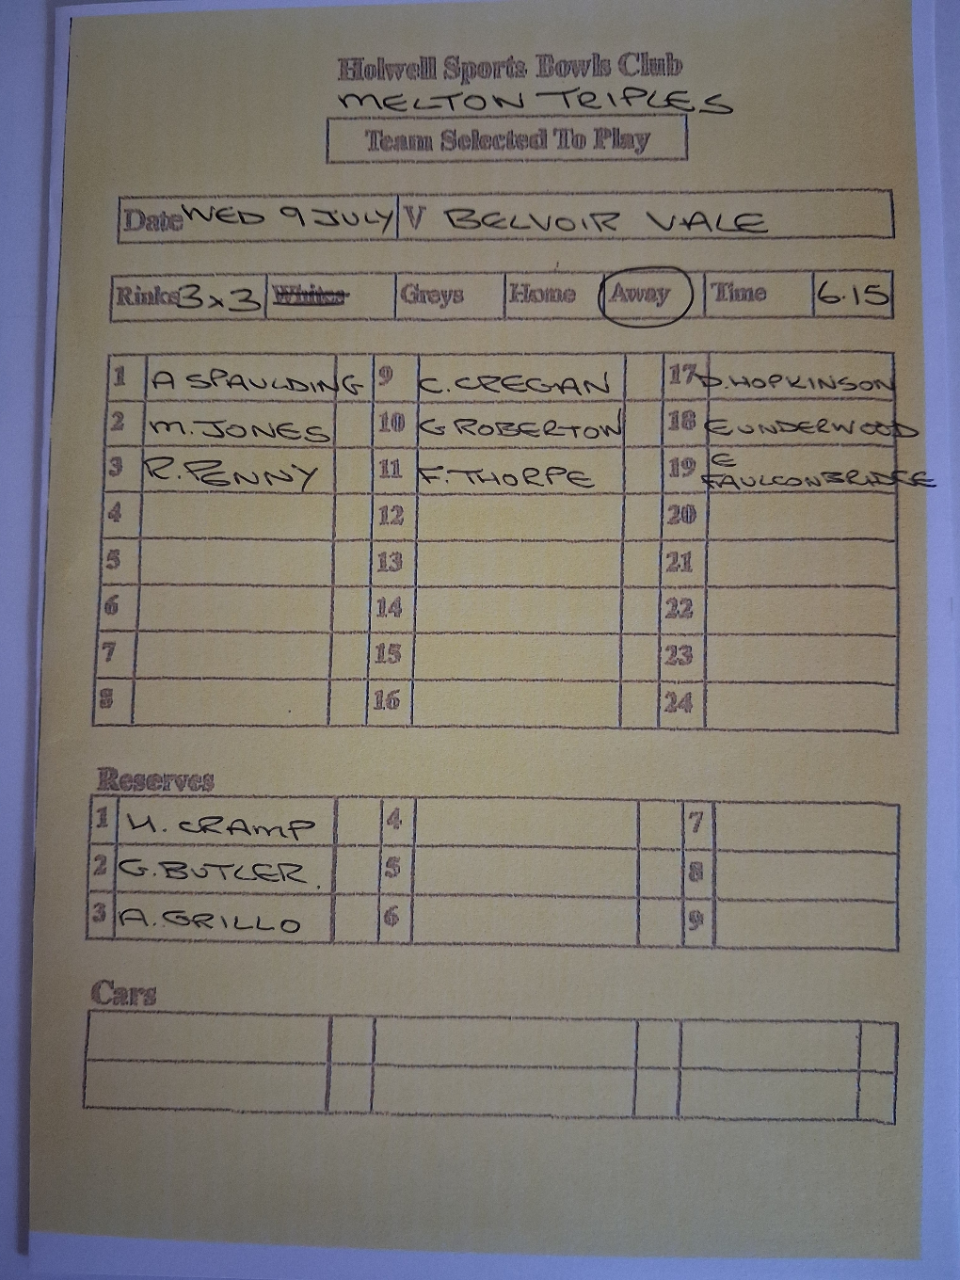 Holwell Sports Bowls Club
MELTON TRIPLES
Team Selected To Play
Date WED 9 JULY V BELVOIR VALE
Rinks 3x3 Whites Greys Home Away Time 6.15
1 A SPAULDING 9 C. CREGAN 17 D. HOPKINSON
2 M. JONES 10 G ROBERTON 18 E UNDERWOOD
3 R. PENNY 11 F. THORPE 19 E FAULCONBRIDGE
4 12 20
5 13 21
6 14 22
7 15 23
8 16 24
Reserves
1 H. CRAMP 4 7
2 G. BUTLER. 5 8
3 A. GRILLO 6 9
Cars